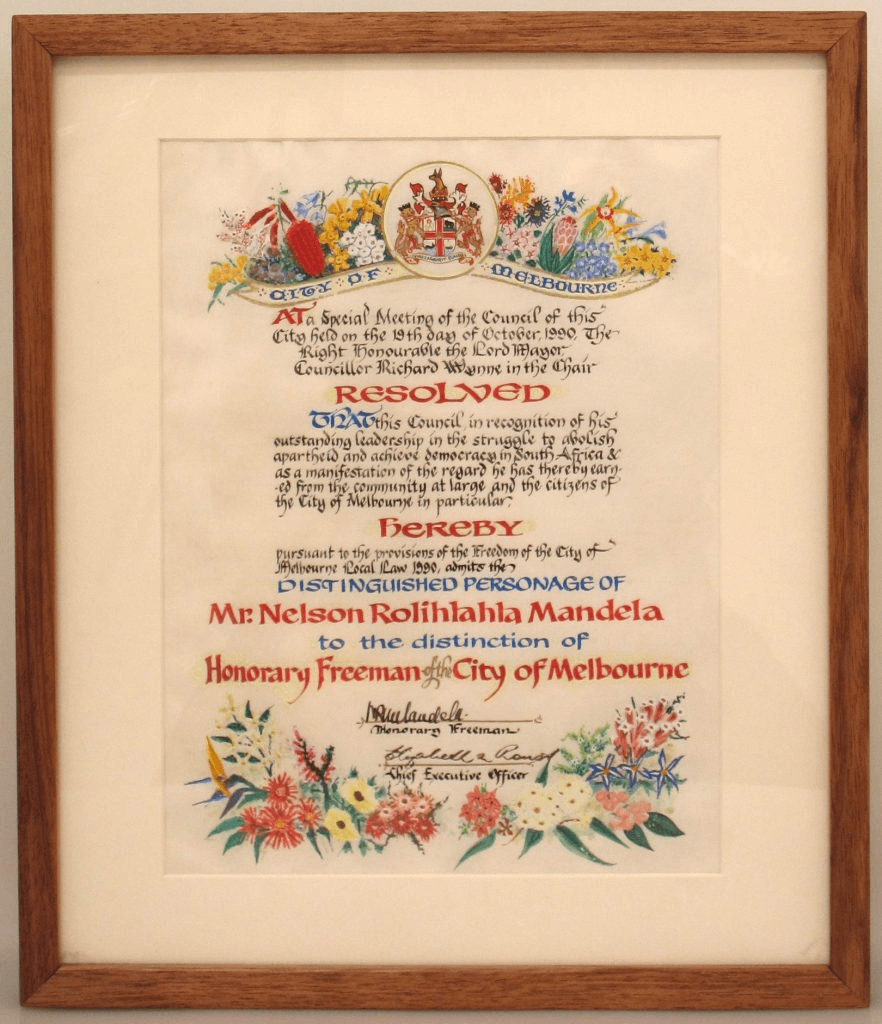 CITY OF MELBOURNE
AT a Special Meeting of the Council of this
City held on the 19th day of October, 1990, The
Right Honourable the Lord Mayor,
Councillor Richard Wynne in the Chair
RESOLVED
THAT this Council, in recognition of his
outstanding leadership in the struggle to abolish
apartheid and achieve democracy in South Africa &
as a manifestation of the regard he has thereby earn-
-ed from the community at large and the citizens of
the City of Melbourne in particular,
HEREBY
pursuant to the provisions of the Freedom of the City of
Melbourne Local Law 1990, admits the
DISTINGUISHED PERSONAGE OF
Mr. Nelson Rolihlahla Mandela
to the distinction of
Honorary Freeman of the City of Melbourne
NRMandela
Honorary Freeman
Elizabeth
Chief Executive Officer